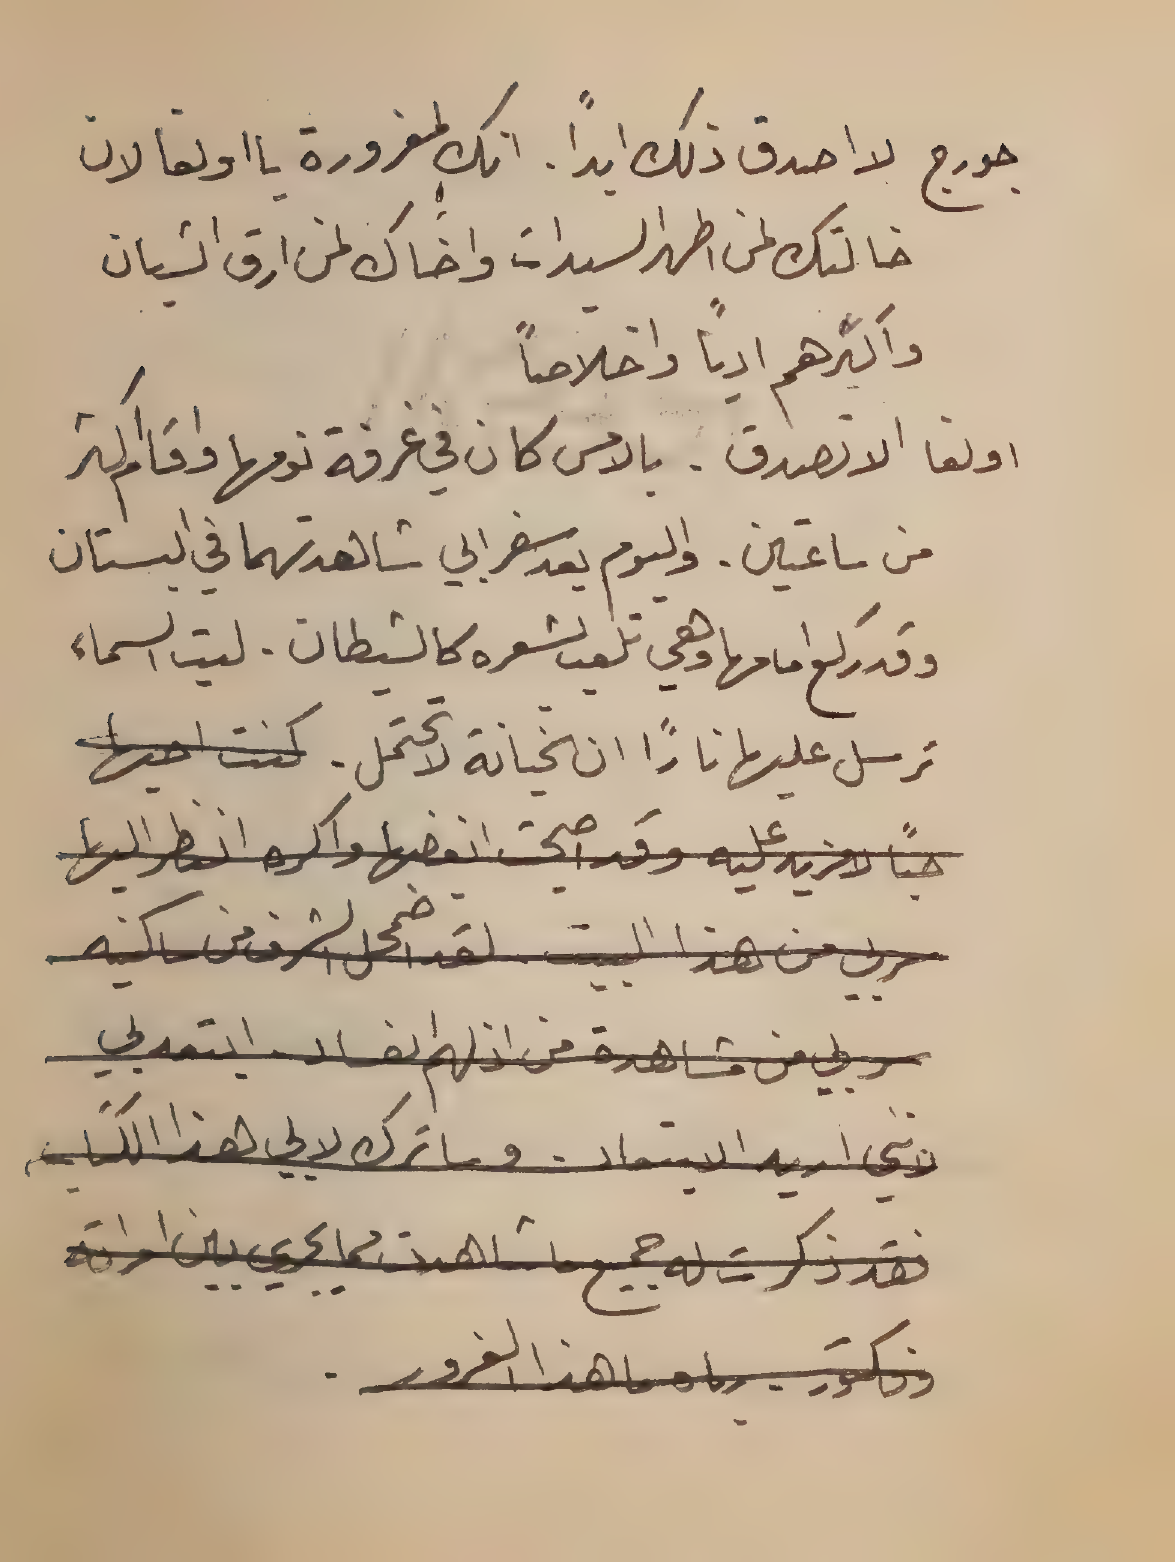 جورج لا اصدق ذلك ابداً . انك لمغرورة يا اولغا لان
خالتك لمن اطهر السيدات واخاك لمن ارق الشبان
واكثرهم ادباً واخلاصاً
اولغا الا تصدق . بالامس كان في غرفة نومها واقام اكثر
من ساعتين . واليوم بعد سفر ابي شاهدتهما في البستان
وقد ركع امامها وهي تلعب بشعره كالشيطان . ليت السماء
ترسل عليها ناراً ان الخيانة لا تحتمل . كنت احبها
حباً لا مزيد عليه وقد اصبحت ابغضها واكره انظر اليها
من هذا البيت . لقد اضمحل الشرف من ساكنيه
بي من مشاهدة من اذلهم الفساد . ابتعد بي
لانني اريد الابتعاد . وساترك لابي هذا الكتاب
فقد ذكرت له جميع ما شاهدت مما يجري بين امراته
وفكتور . رباه ما هذا الغرور .